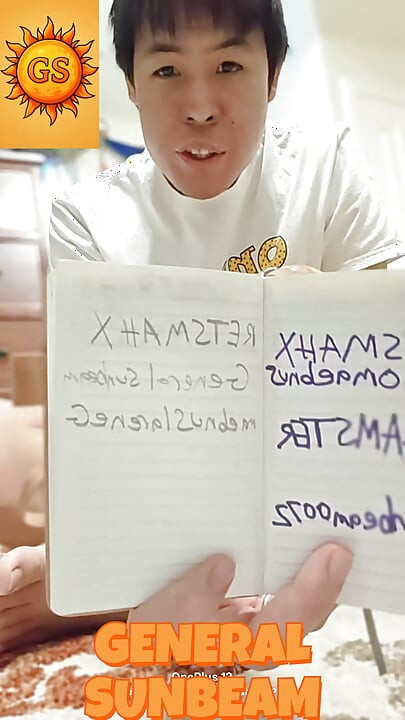 GS
RETSMAHX
General sunbeam
mebnuSlareneG
SMAHX
omaebnus
AMSTER
beam0072
GENERAL
SUNBEAM